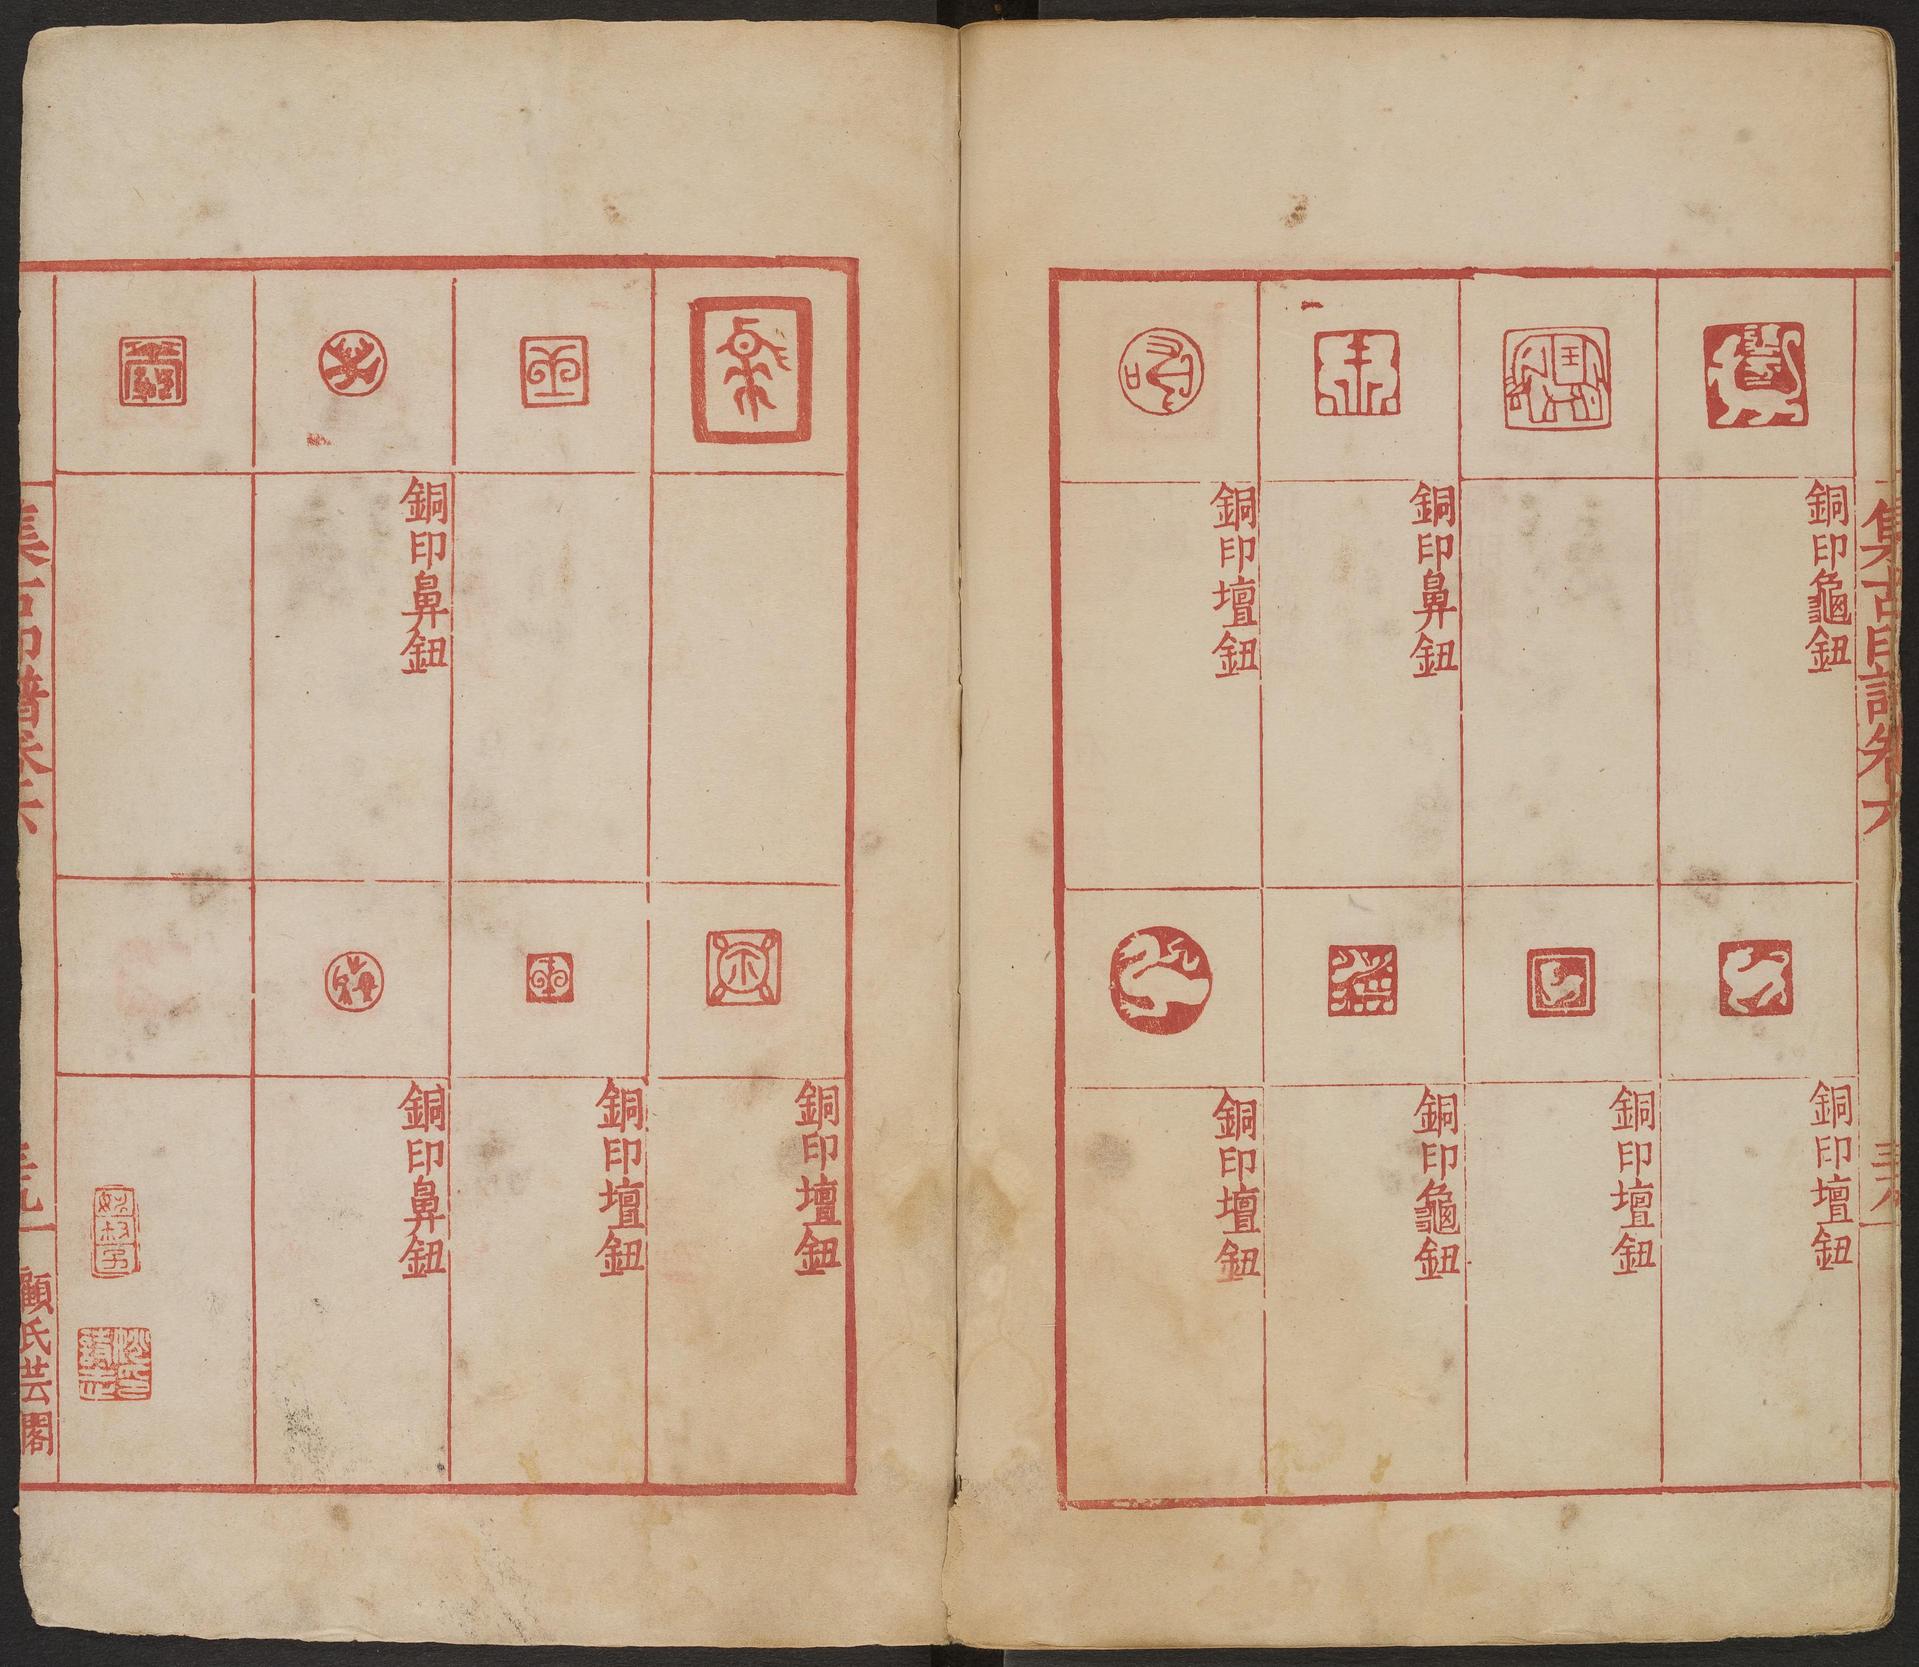 集古印譜卷六
銅印龜鈕
銅印鼻鈕
銅印壇鈕
銅印壇鈕
銅印壇鈕
銅印龜鈕
銅印壇鈕
銅印鼻鈕
銅印壇鈕
銅印壇鈕
銅印鼻鈕
集古印譜卷六
顧氏芸閣